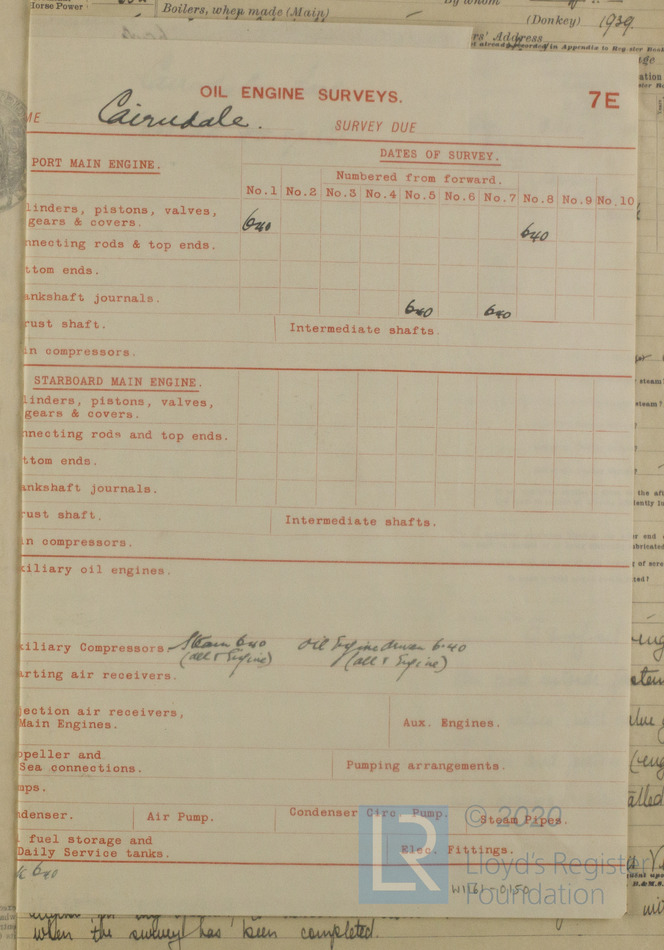 Horse Power
Boilers, when made (Main)
By whom
(Donkey) 1939.
rs' Address
OIL ENGINE SURVEYS.
7E
ME Cairndale.
SURVEY DUE
PORT MAIN ENGINE.
DATES OF SURVEY.
Numbered from forward.
No.1 No.2 No.3 No.4 No.5 No.6 No.7 No.8 No.9 No.10
linders, pistons, valves,
gears & covers.
6.40 6.40
nnecting rods & top ends.
ttom ends.
ankshaft journals.
6.40 6.40
rust shaft.
Intermediate shafts.
in compressors.
STARBOARD MAIN ENGINE.
linders, pistons, valves,
gears & covers.
nnecting rods and top ends.
ttom ends.
ankshaft journals.
rust shaft.
Intermediate shafts.
in compressors.
xiliary oil engines.
xiliary Compressors. Steam 6.40 Oil Engine driven 6.40
(all & Engine) (all & Engine)
arting air receivers.
jection air receivers,
Main Engines.
Aux. Engines.
opeller and
Sea connections.
Pumping arrangements.
mps.
ndenser.
Air Pump.
Condenser Circ. Pump.
Steam Pipes.
l fuel storage and
Daily Service tanks.
Elec. Fittings.
6.40
LR
© 2020
Lloyd's Register
Foundation
W1161-0150
when the survey has been completed.